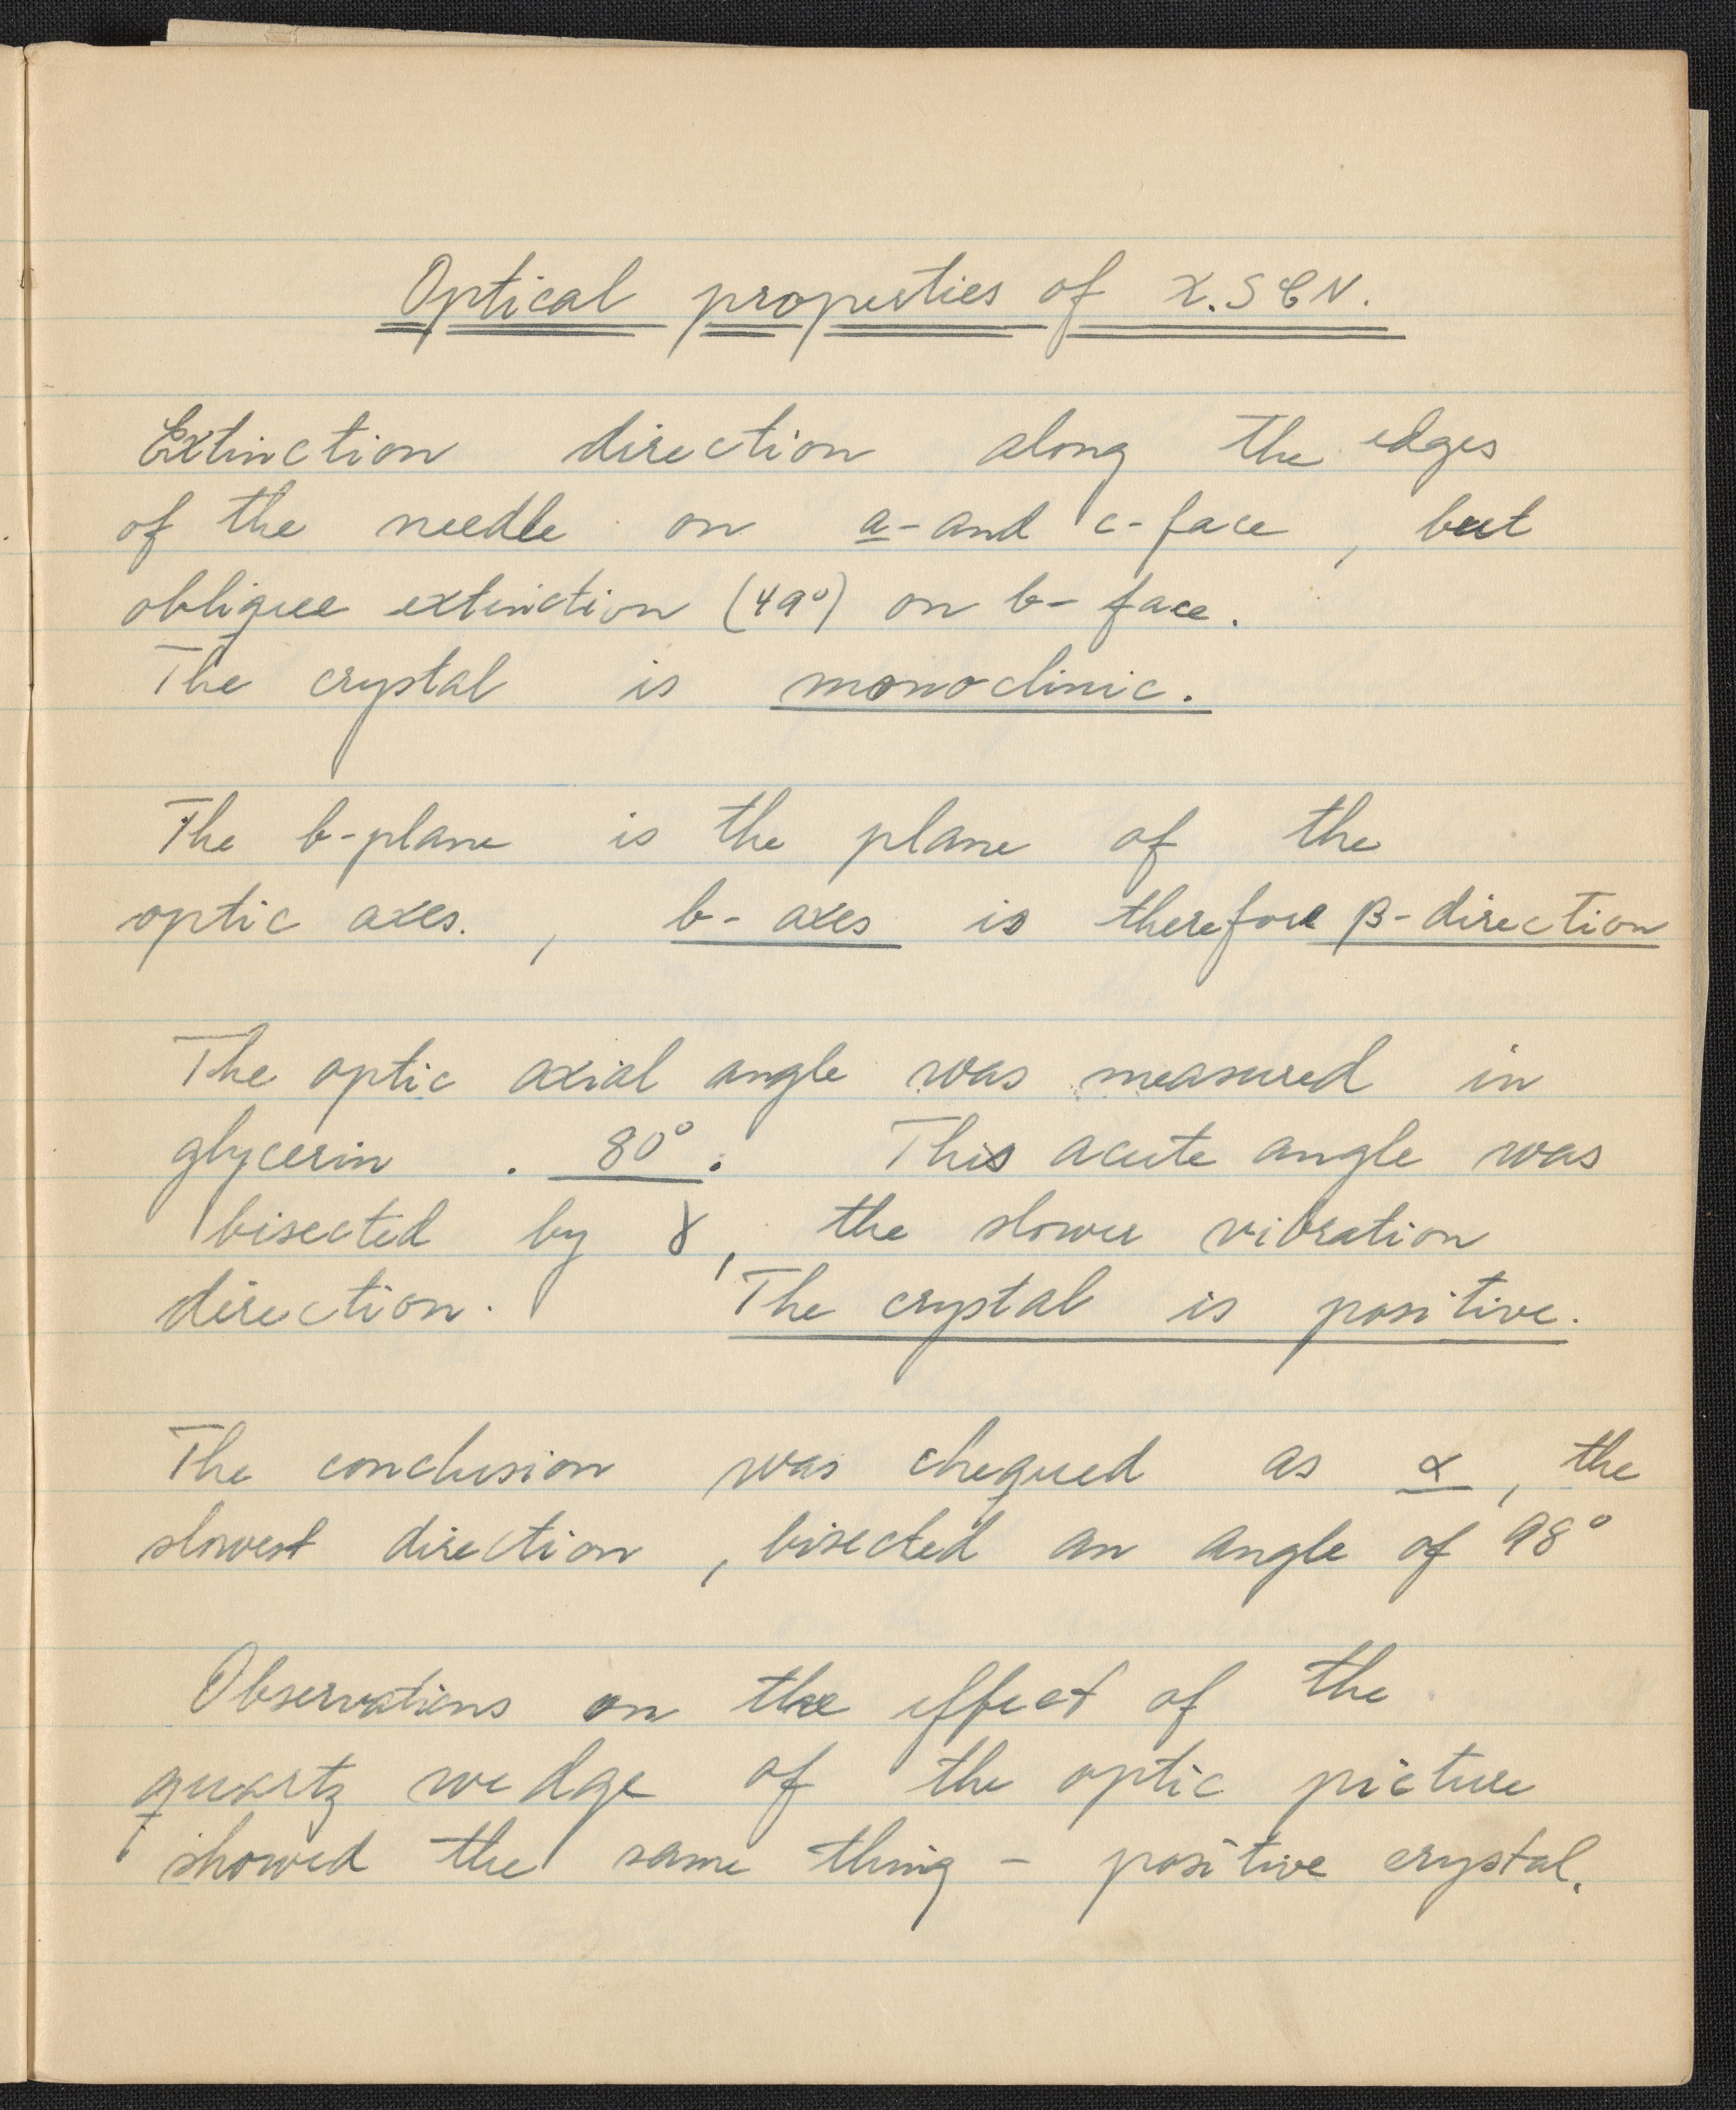 Optical properties of K.SCN.
Extinction direction along the edges
of the needle on a-and c-face, but
obliquee extinction (49°) on b-face.
The crystal is monoclinic.
The b-plane is the plane of the
optic axes. , b-axes is therefore β-direction
The optic axial angle was measured in
glycerin . 80°. This acute angle was
bisected by γ, the slower vibration
direction. The crystal is positive.
The conclusion was chequed as α, the
slowest direction, bisected an angle of 98°
Observations on the effect of the
quartz wedge of the optic picture
showed the same thing - positive crystal.